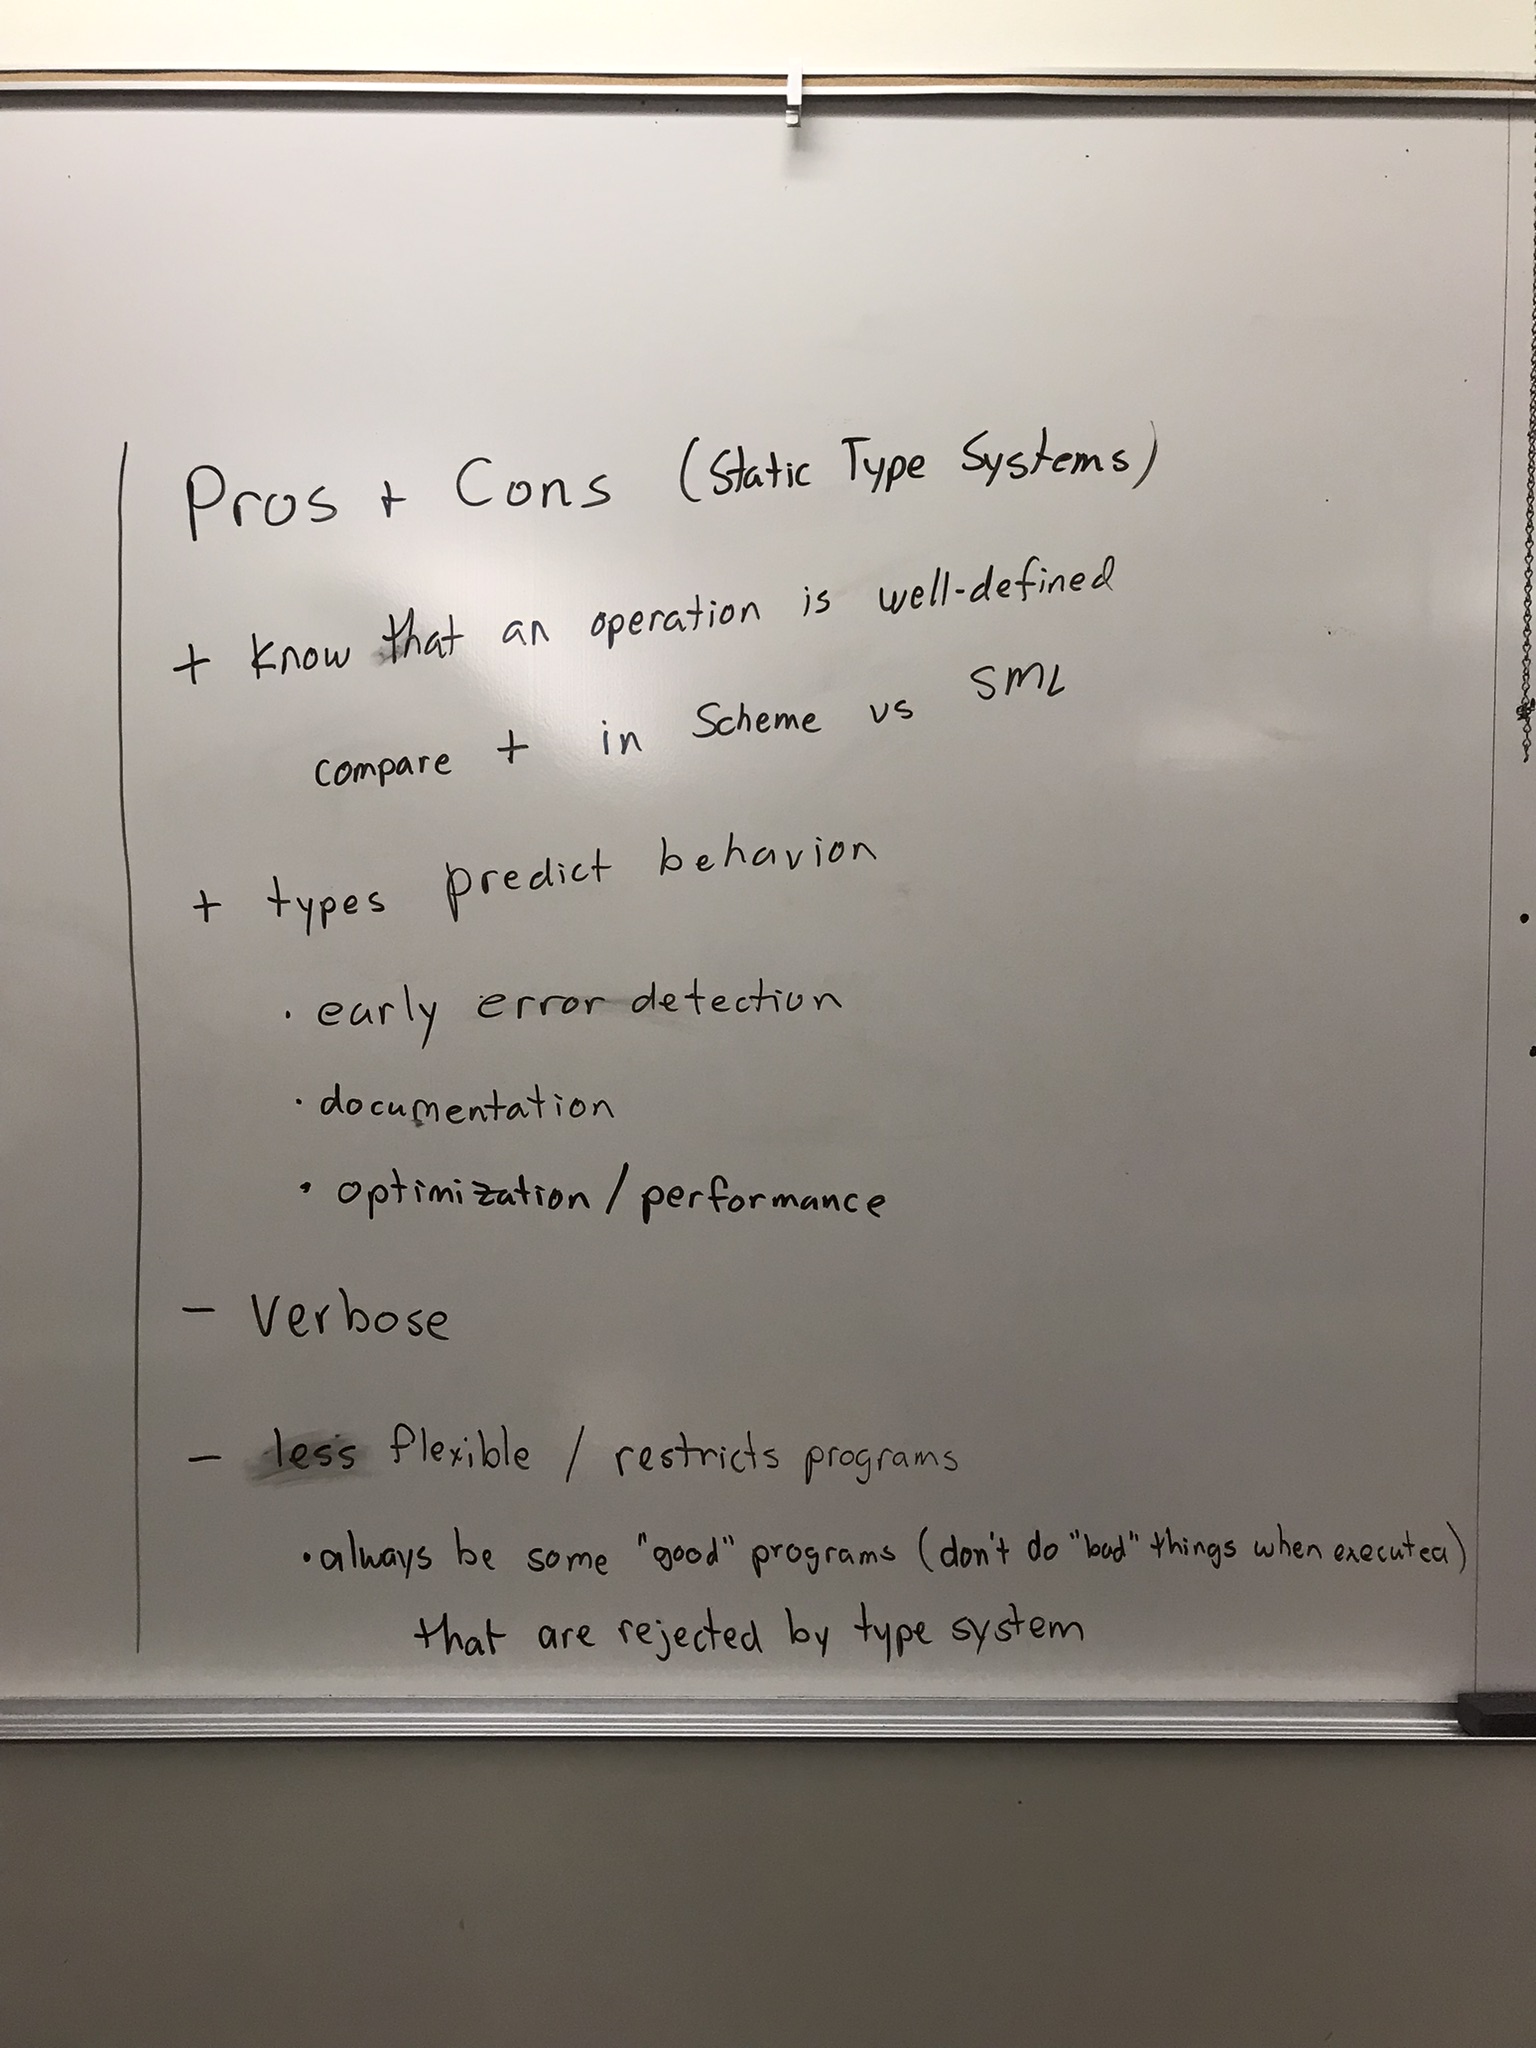 Pros + Cons (Static Type Systems)
+ know that an operation is well-defined
compare + in Scheme vs SML
+ types predict behavior
· early error detection
· documentation
· optimization / performance
- Verbose
- less flexible / restricts programs
· always be some "good" programs (don't do "bad" things when executed)
that are rejected by type system